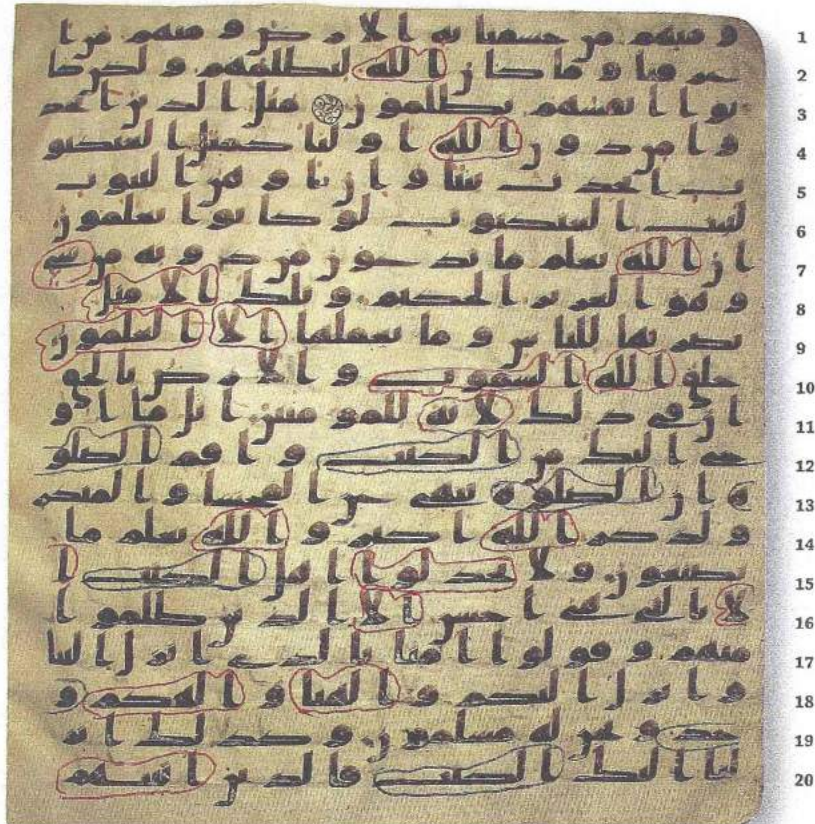 1 ومنهم من خسفنا به الارض ومنهم من ا
2 غرقنا وما كان الله ليظلمهم ولكن كا
3 نوا انفسهم يظلمون مثل الذين اتخذ
4 وا من دون الله اوليا كمثل العنكبو
5 ت اتخذت بيتا وان اوهن البيوت
6 لبيت العنكبوت لو كانوا يعلمون
7 ان الله يعلم ما تدعون من دونه من شى
8 وهو العزيز الحكيم وتلك الامثل
9 نضربها للناس وما يعقلها الا العلمون
10 خلق الله السموت والارض بالحق
11 ان فى ذلك لاية للمومنين اتل ما او
12 حى اليك من الكتب واقم الصلو
13 ة ان الصلوة تنهى عن الفحشا والمنكر
14 ولذكر الله اكبر والله يعلم ما
15 تصنعون ولا تجدلوا اهل الكتب ا
16 لا بالتى هى احسن الا الذين ظلموا
17 منهم وقولوا امنا بالذى انزل الينا
18 وانزل اليكم والهنا والهكم و
19 حد ونحن له مسلمون وكذلك انز
20 لنا اليك الكتب فالذين اتينهم